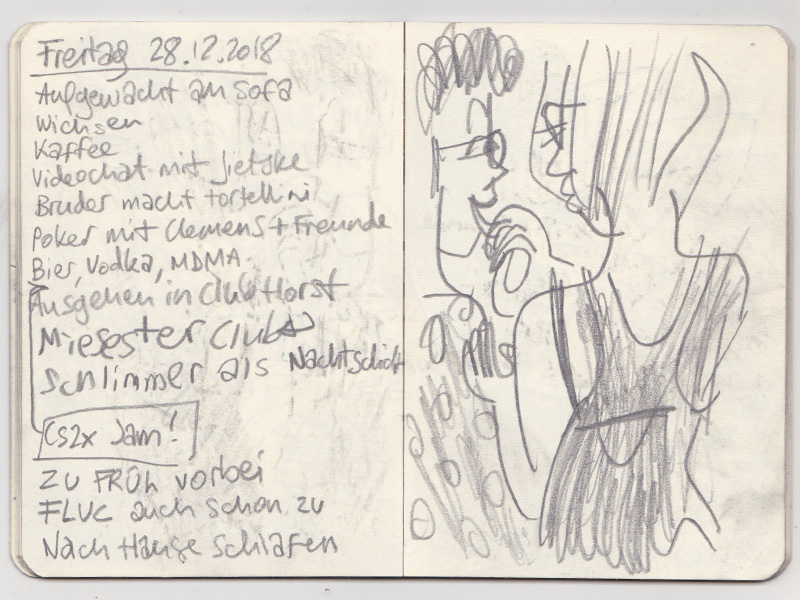 Freitag 28.12.2018
Aufgewacht am Sofa
Wichsen
Kaffee
Videochat mit Jietske
Bruder macht Tortellini
Poker mit Clemens + Freunde
Bier, Vodka, MDMA
Ausgehen in Club Horst
Miesester Club
Schlimmer als Nachtschicht
CS2x Jam!
ZU FRÜH vorbei
FLUC auch schon zu
Nach Hause schlafen